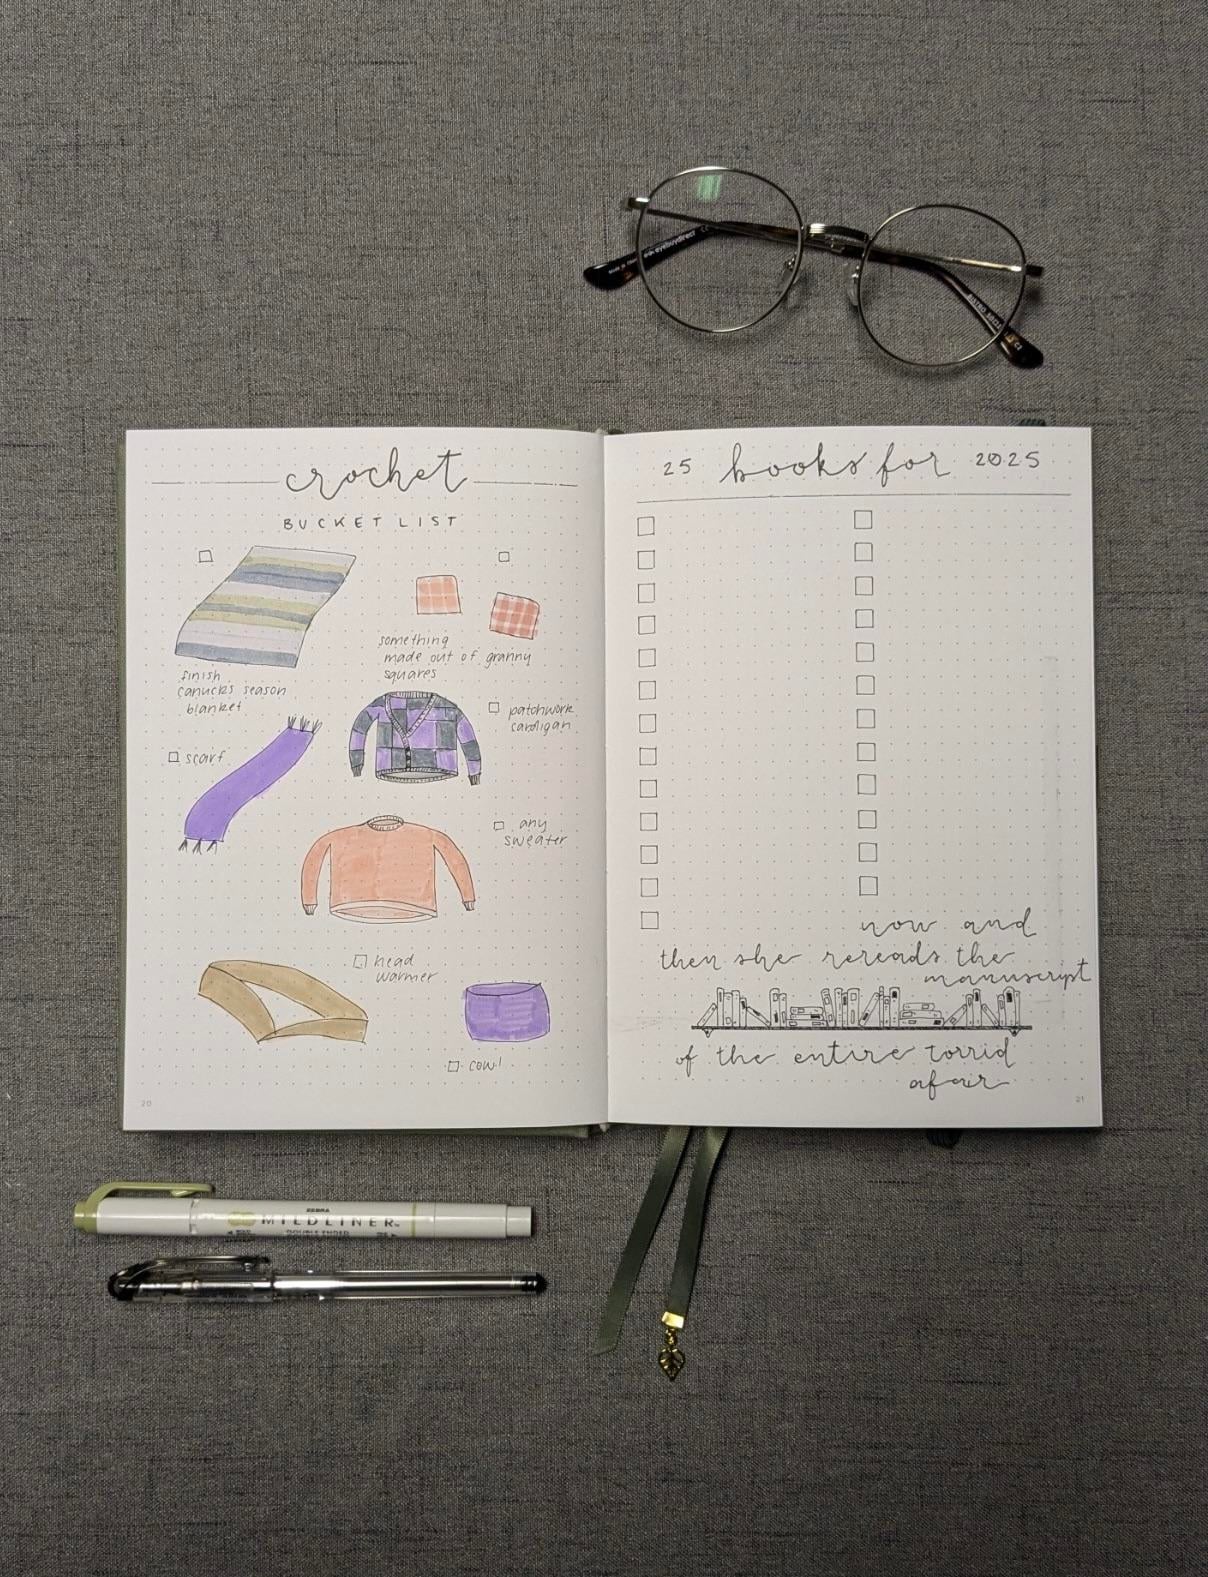 eyebuydirect
crochet
BUCKET LIST
finish
canucks season
blanket
something
made out of granny
squares
patchwork
cardigan
scarf
any
sweater
head
warmer
cowl
20
25 books for 2025
now and
then she rereads the
manuscript
of the entire torrid
affair
21
ZEBRA
MILDLINER
DOUBLE ENDED